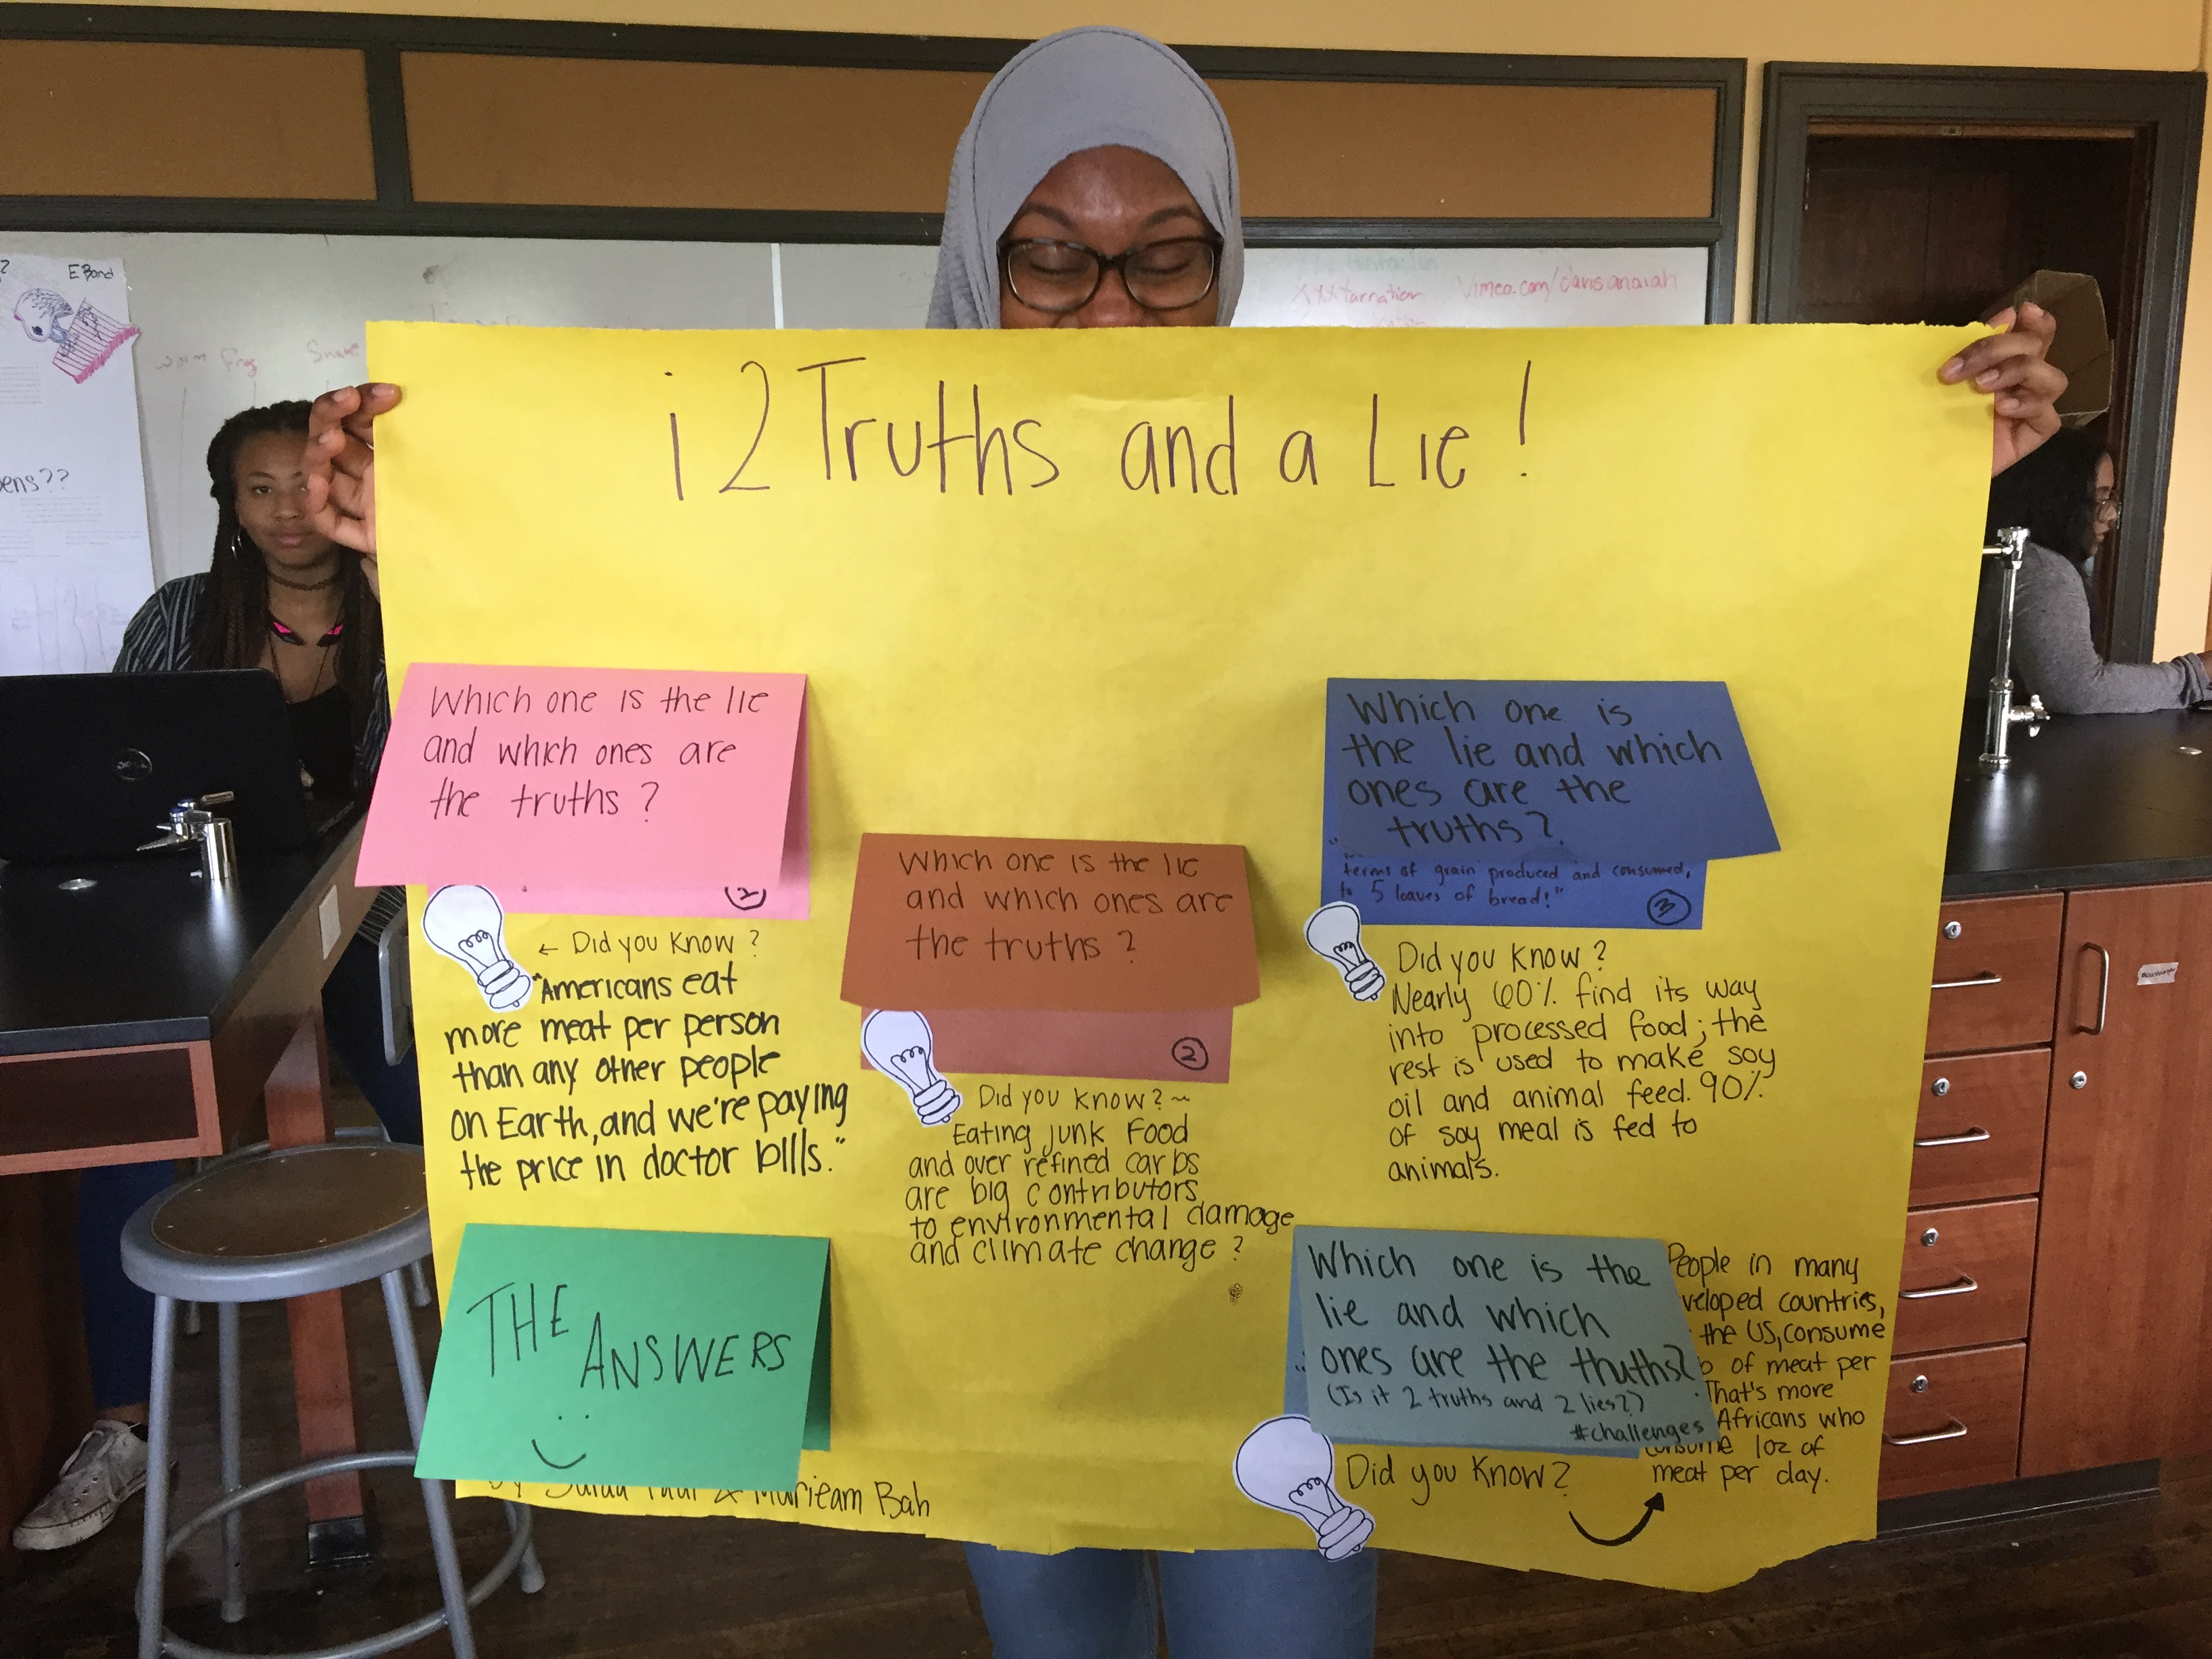 ¡ 2 Truths and a Lie!
Which one is the lie
and which ones are
the truths?
← Did you know?
"Americans eat
more meat per person
than any other people
on Earth, and we're paying
the price in doctor bills."
Which one is the lie
and which ones are
the truths?
2
Did you know? ~
Eating junk food
and over refined carbs
are big contributors
to environmental damage
and climate change?
Which one is
the lie and which
ones are the
truths?
terms of grain produced and consumed,
to 5 loaves of bread!"
3
Did you know?
Nearly 60% find its way
into processed food; the
rest is used to make soy
oil and animal feed. 90%
of soy meal is fed to
animals.
THE
ANSWERS
Bah
Which one is the
lie and which
ones are the thuths?
(Is it 2 truths and 2 lies?)
#challenges
Did you know?
People in many
countries,
the US, consume
of meat per
That's more
Africans who
1oz of
meat per day.
E Band
worm frog
vimeo.com/